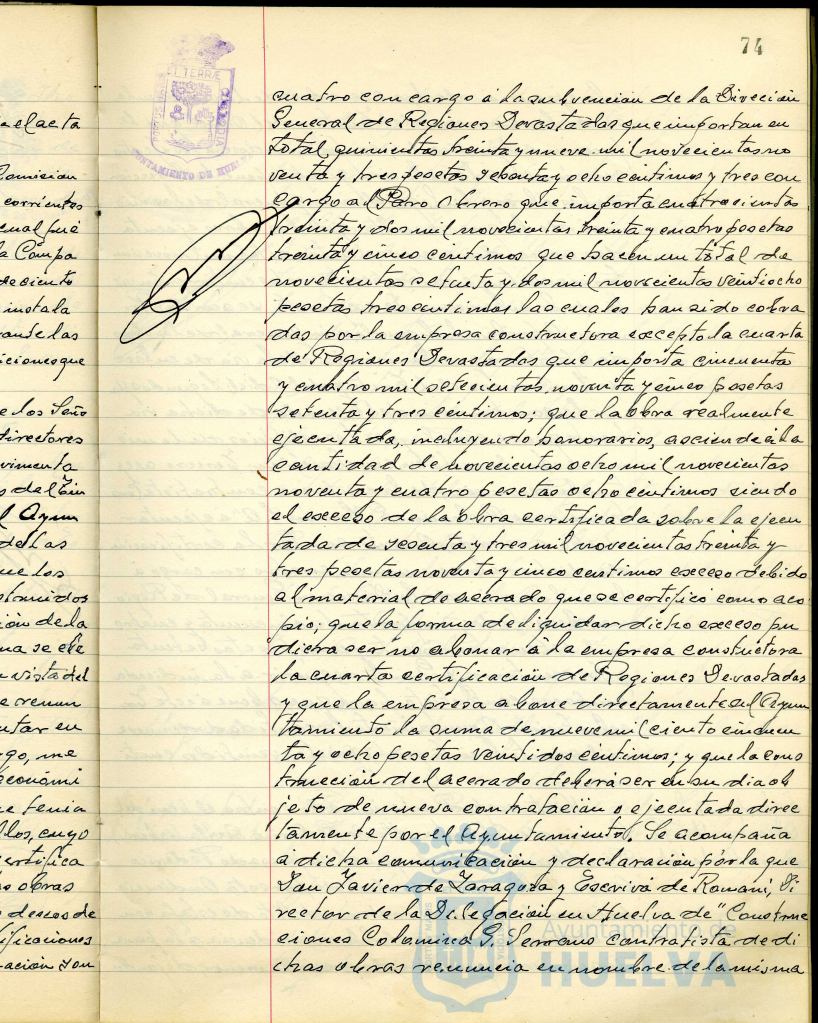 74
cuatro con cargo á la subvención de la Dirección
General de Regiones Devastadas que importan en
total, quinientas treinta y nueve mil novecientas no
venta y tres pesetas setenta y ocho centimos y tres con
cargo al Paro Obrero que importa cuatrocientas
treinta y dos mil novecientas treinta y cuatro pesetas
treinta y cinco centimos que hacen un total de
novecientas setenta y dos mil novecientas veintiocho
pesetas trece centimos las cuales han sido cobra
das por la empresa constructora excepto la cuarta
de Regiones Devastadas que importa cincuenta
y cuatro mil setecientas noventa y cinco pesetas
setenta y tres centimos; que la obra realmente
ejecutada, incluyendo honorarios, asciende á la
cantidad de novecientas ocho mil novecientas
noventa y cuatro pesetas ocho centimos siendo
el exceso de la obra certificada sobre la ejecu
tada de sesenta y tres mil novecientas treinta y
tres pesetas noventa y cinco centimos exceso debido
al material de acerado que se certificó como aco
pio; que la forma de liquidar dicho exceso pu
diera ser no abonar á la empresa constructora
la cuarta certificación de Regiones Devastadas
y que la empresa abone directamente al Ayun
tamiento la suma de nueve mil ciento cincuen
ta y ocho pesetas veintidos centimos; y que la cons
trucción del acerado deberá ser en su dia ob
jeto de nueva contratación o ejecutada direc
tamente por el Ayuntamiento. Se acompaña
á dicha comunicación y declaración por la que
Don Javier de Zaragoza y Escrivá de Romaní, Di
rector de la Delegación en Huelva de "Construc
ciones Colomina G. Serrano contratista de di
chas obras renuncia en nombre de la misma
a el acta
corrientes
cual fué
la Compa
de ciento
instala
iciones que
e los Seño
directores
vimenta
l Ayun
de las
ue los
ción de la
na se ele
vista del
e renun
ntar en
go, me
económi
e tenia
llos, cuyo
ertifica
s obras
s deseos de
tificaciones
ación son
Ayuntamiento de
HUELVA